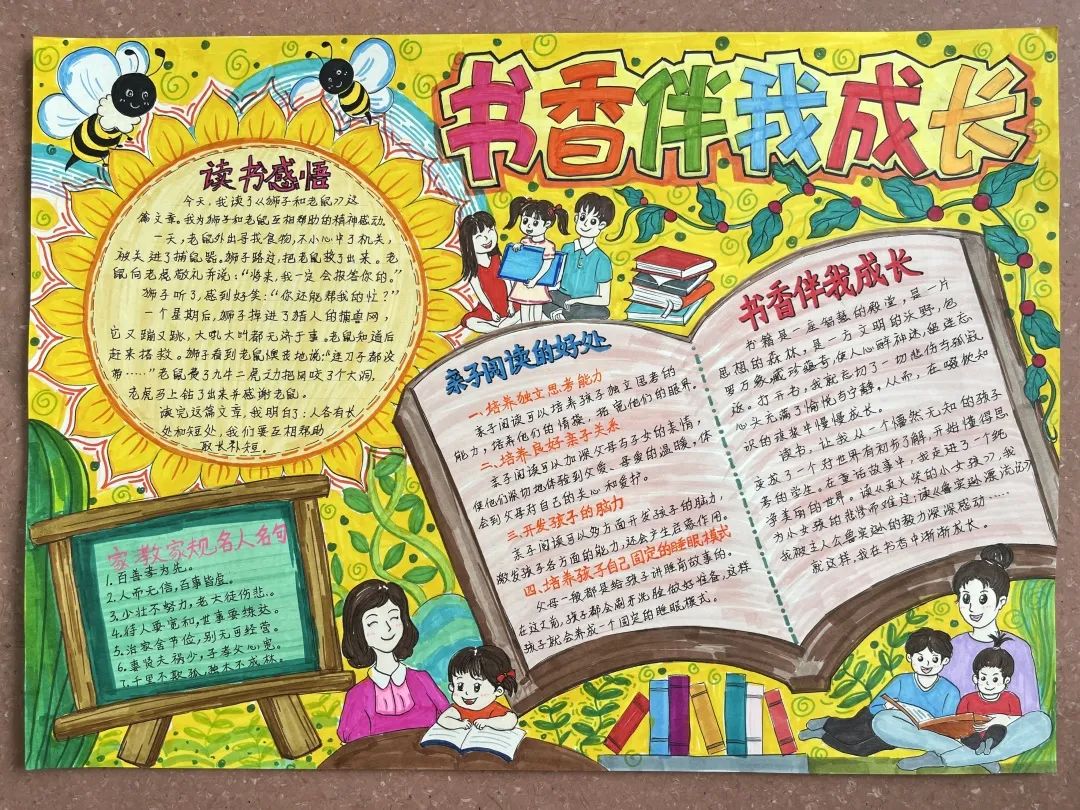 书香伴我成长
读书感悟
今天,我读了《狮子和老鼠》这
篇文章。我为狮子和老鼠互相帮助的精神感动。
一天,老鼠外出寻找食物,不小心中了机关,
被关进了捕鼠器。狮子路过,把老鼠救了出来。老
鼠向老虎敬礼并说:“将来,我一定会报答你的。”
狮子听了,感到好笑:“你还能帮我的忙?”
一个星期后,狮子掉进了猎人的捕兽网,
它又蹦又跳,大吼大叫都无济于事。老鼠知道后
赶来搭救。狮子看到老鼠懊丧地说:“连刀子都没
带……”老鼠费了九牛二虎之力把网咬了个大洞,
老虎马上钻了出来并感谢老鼠。
读完这篇文章,我明白了:人各有长
处和短处,我们要互相帮助
取长补短。
亲子阅读的好处
一、培养独立思考能力
亲子阅读可以培养孩子独立思考的
能力,培养他们的情操,拓宽他们的眼界。
二、培养良好亲子关系
亲子阅读可以加深父母与子女的亲情,
使他们深切地体验到父爱、母爱的温暖,体
会到父母对自己的关心和爱护。
三、开发孩子的脑力
亲子阅读可以多方面开发孩子的脑力,
激发孩子各方面的能力,还会产生启蒙作用。
四、培养孩子自己固定的睡眠模式
父母一般都是给孩子讲睡前故事的。
在这之前,孩子都会刷牙洗脸做好准备,这样
孩子就会养成一个固定的睡眠模式。
书香伴我成长
书籍是一座智慧的殿堂,是一片
思想的森林,是一方文明的沃野,包
罗万象藏珍蕴奇,使人心解神迷留连忘
返。打开书,我就忘切了一切悲伤与孤寂
心头充满了愉悦与宁静。从而,在吸收知
识的旅途中慢慢成长。
读书,让我从一个懵然无知的孩子
变成了一个对世界有初步了解,开始懂得思
考的学生。在童话故事中,我走进了一个纯
净美丽的世界。读《卖火柴的小女孩》,我
为小女孩的悲惨而难过;读《鲁宾逊漂流记》
我被主人公鲁宾逊的毅力深深感动……
就这样,我在书香中渐渐成长。
家教家规名人名句
1.百善孝为先。
2.人而无信,百事皆虚。
3.少壮不努力,老大徒伤悲。
4.待人要宽和,世事要练达。
5.治家舍节俭,别无可经营。
6.妻贤夫祸少,子孝父心宽。
7.千里不欺孤,独木不成林。